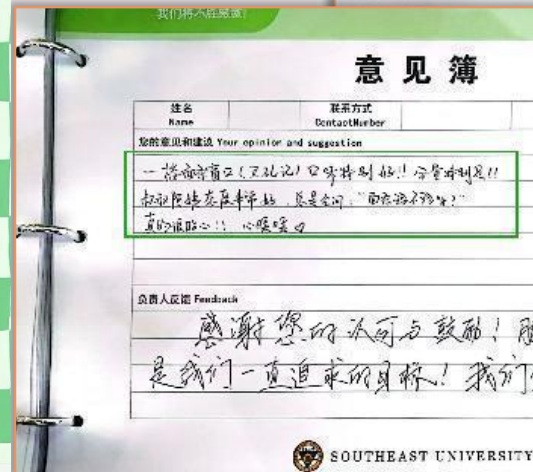 我们将不胜感谢!
意见簿
姓名 联系方式
Name ContactNumber
您的意见和建议 Your opinion and suggestion
一楼 窗口 口味特别好!! 分量特别足!!
叔叔阿姨态度非常好, 总是会问: "
真的很贴心!! 心暖暖
负责人反馈 Feedback
感谢您的认可与鼓励!
是我们一直追求的目标! 我们
SOUTHEAST UNIVERSITY